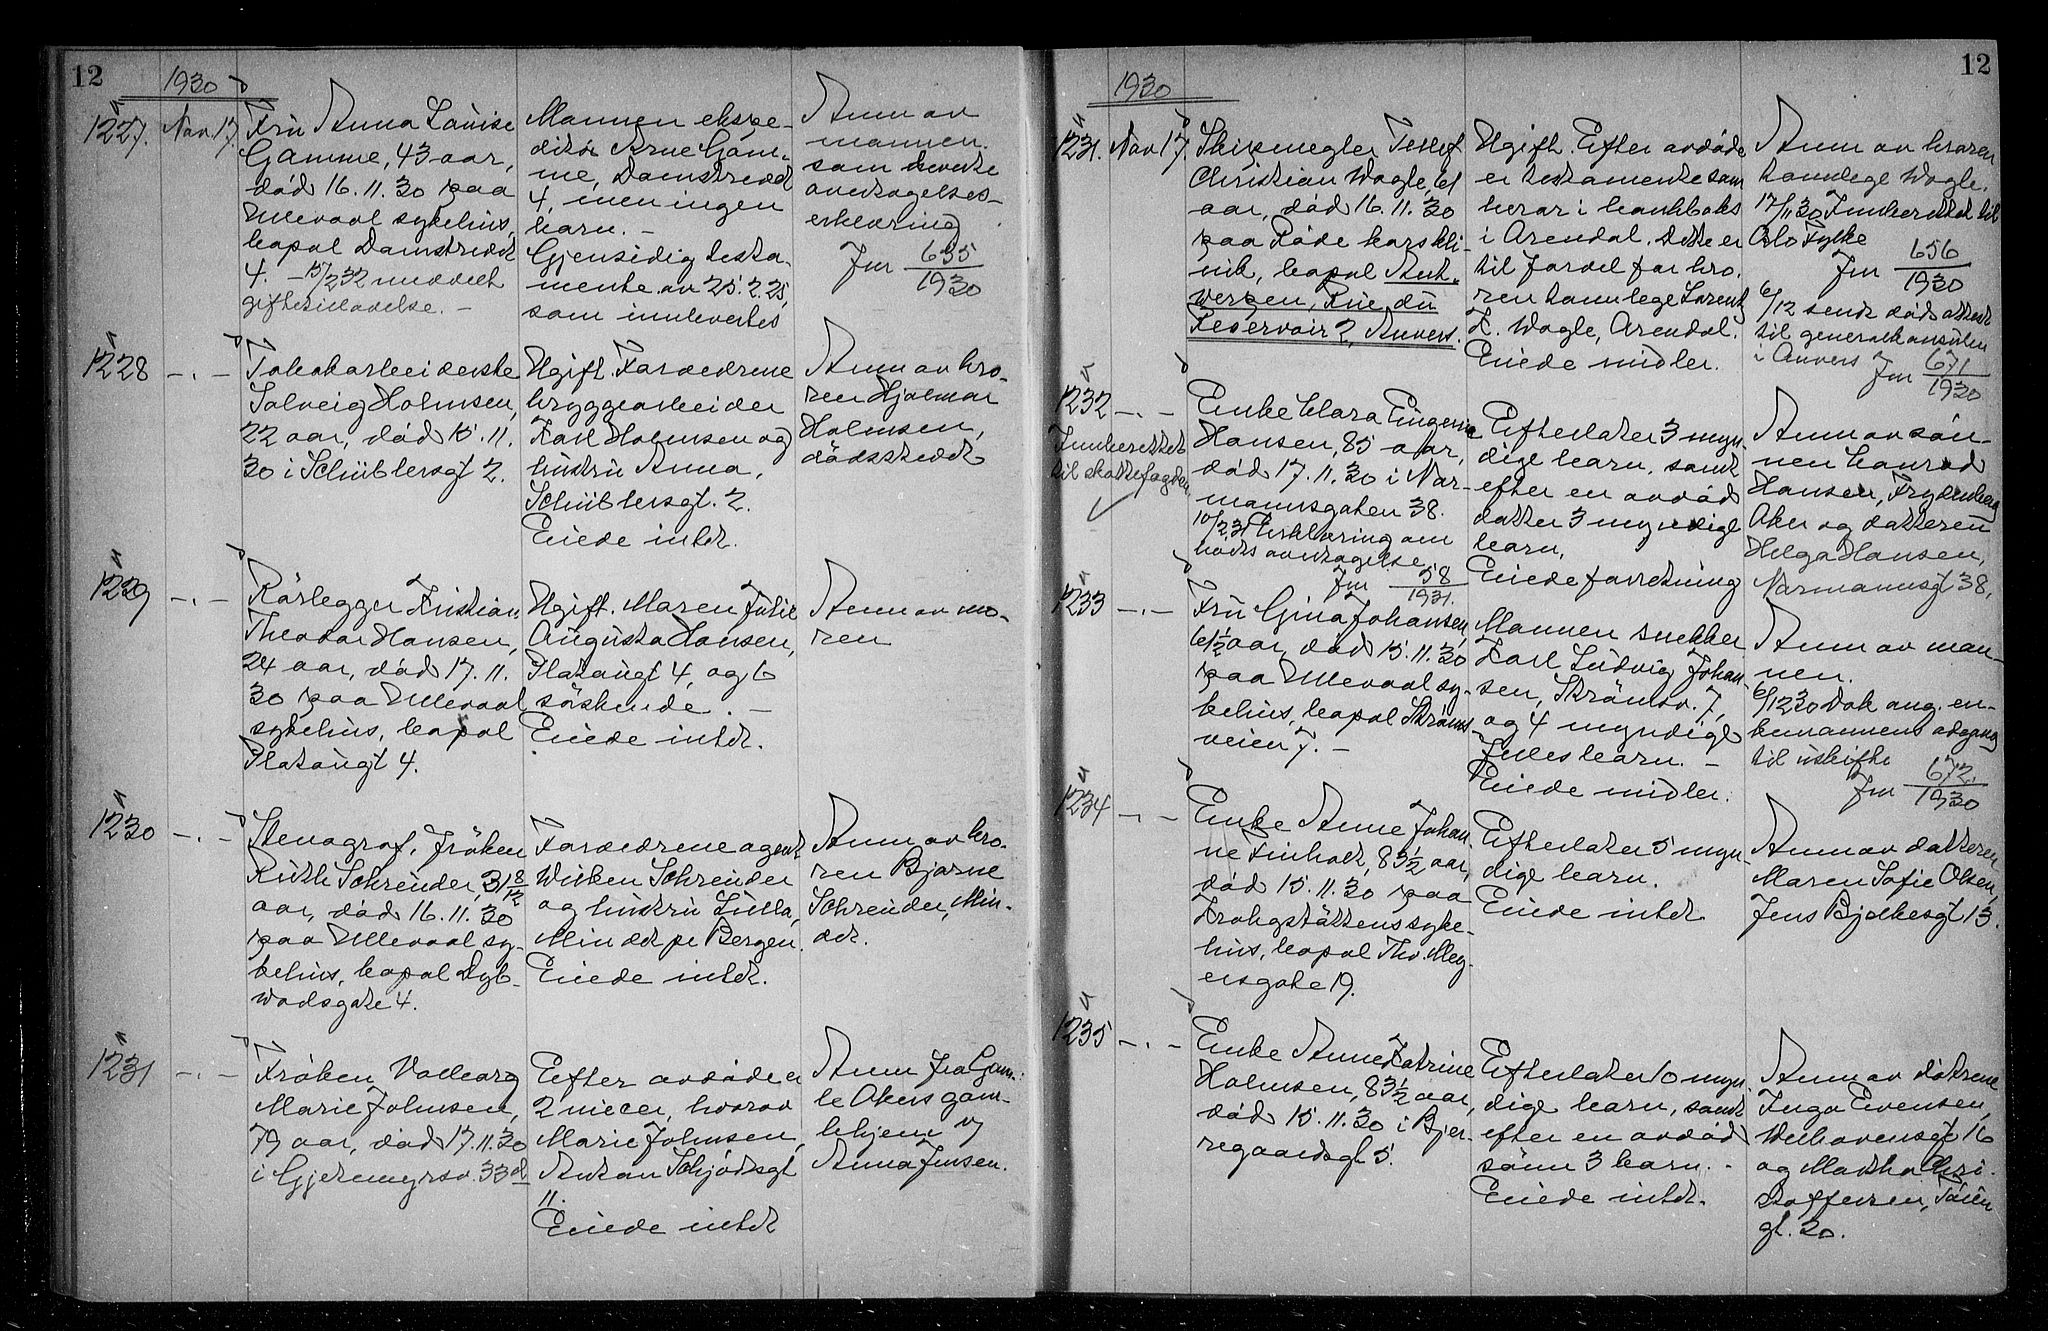 12
1930
1227. Nov. 17.
Fru Anna Louise
Gamme, 43 aar,
död 16.11.30 paa
Ullevaal sykehus,
bopal Damstredet
4. – 15/2 32 meddelt
giftetilladelse. –
Mannen ekspe-
ditör Arne Gam-
me, Damstredet
4, men ingen
barn. –
Gjensidig testa-
mente av 25.2.25,
som innlevertes
Anm av
mannen.
som hevnte
overtagelses-
erklæring
Jnr 655/1930
1228 – . –
Tobakarbeiderske
Solveig Holmsen,
22 aar, död 15.11.
30 i Schüblersgt 2.
Ugift. Forældrene
bryggearbeider
Karl Holmsen og
hustru Anna,
Schüblersgt. 2.
Eiede intet.
Anm av bro-
ren Hjalmar
Holmsen,
dödsstedet
1229 – . –
Rörlegger Kristian
Theodor Hansen,
24 aar, död 17.11.
30 paa Ullevaal
sykehus, bopal
Plataugt 4.
Ugift. Moren Julie
Augusta Hansen,
Plataugt 4, og 6
söskende. –
Eiede intet.
Anm av mo-
ren
1230 – . –
Stenograf, Fröken
Ruth Schreuder, 31 8/12
aar, död 16.11.30
paa Ullevaal sy-
kehus, bopal Dyb-
wadsgate 4.
Forældrene agent
Wilken Schreuder
og hustru Lulla,
Mindet pr Bergen.
Eiede intet.
Anm av bro-
ren Bjarne
Schreuder, Min-
det.
1231 – . –
Fröken Valborg
Marie Johnsen,
79 aar, död 17.11.30
i Gjetemyrsv. 33 d
Efter avdöde er
2 niecer, hvorav
Marie Johnsen,
Anton Schjödsgt
11.
Eiede intet
Anm fra Gam-
le Akers gam-
lehjem v/
Anna Jensen.
12
1930
1231. Nov 17.
Skipsmegler Tellef
Christian Wogle, 61
aar, död 16.11.30
paa Röde kors kli-
nik, bopal Ant-
werpen, Rue du
Reservoir 2, Anvers.
Ugift. Efter avdöde
er testamente som
beror i bankboks
i Arendal. Dette er
til fordel for bro-
ren tannlege Lorentz
F. Wogle, Arendal.
Eiede midler.
Anm av broren
tannlege Wogle.
17/11 30 Innberettet til
Oslo Fylke
Jnr 656/1930
6/12 sendt död attest
til generalkonsulen
i Anvers Jnr 671/1930
1232 – . –
Innberettet
til skattefogden
Enke Clara Eugenie
Hansen, 85 aar,
död 17.11.30 i Nor-
mannsgaten 38.
10/2 31 Erklæring om
boets overtagelse
Jnr 58/1931.
Efterlater 3 myn-
dige barn, samt
efter en avdöd
datter 3 myndige
barn.
Eiede forretning
Anm av sön-
nen Conrad
Hansen, Frydenberg
Aker og datteren
Helga Hansen,
Normannsgt 38,
1233 – . –
Fru Gina Johansen,
61 1/2 aar, död 15.11.30
paa Ullevaal sy-
kehus, bopal Ströms-
veien 7. –
Mannen snekker
Karl Ludvig Johan-
sen, Strömsv. 7,
og 4 myndige
felles barn. –
Eiede midler.
Anm av man-
nen.
6/12 30 Dok ang. en-
kemannens adgang
til uskifte
Jnr 672/1930
1234 – . –
Enke Anne Johan-
ne Finholt, 83 1/2 aar,
död 15.11.30 paa
Krohgstöttens syke-
hus, bopal Thv. Mey-
ersgate 19.
Efterlater 5 myn-
dige barn.
Eiede intet
Anm av datteren
Maren Sofie Olsen,
Jens Bjelkesgt 13.
1235 – . –
Enke Anne Katrine
Holmsen, 83 1/2 aar,
död 15.11.30 i Bjer-
regaardsgt 5.
Efterlater 10 myn-
dige barn, samt
efter en avdöd
sönn 3 barn. –
Eiede intet.
Anm av dötrene
Inga Evensen,
Welhavensgt 16
og Martha Kri-
stoffersen,
gt. 20.